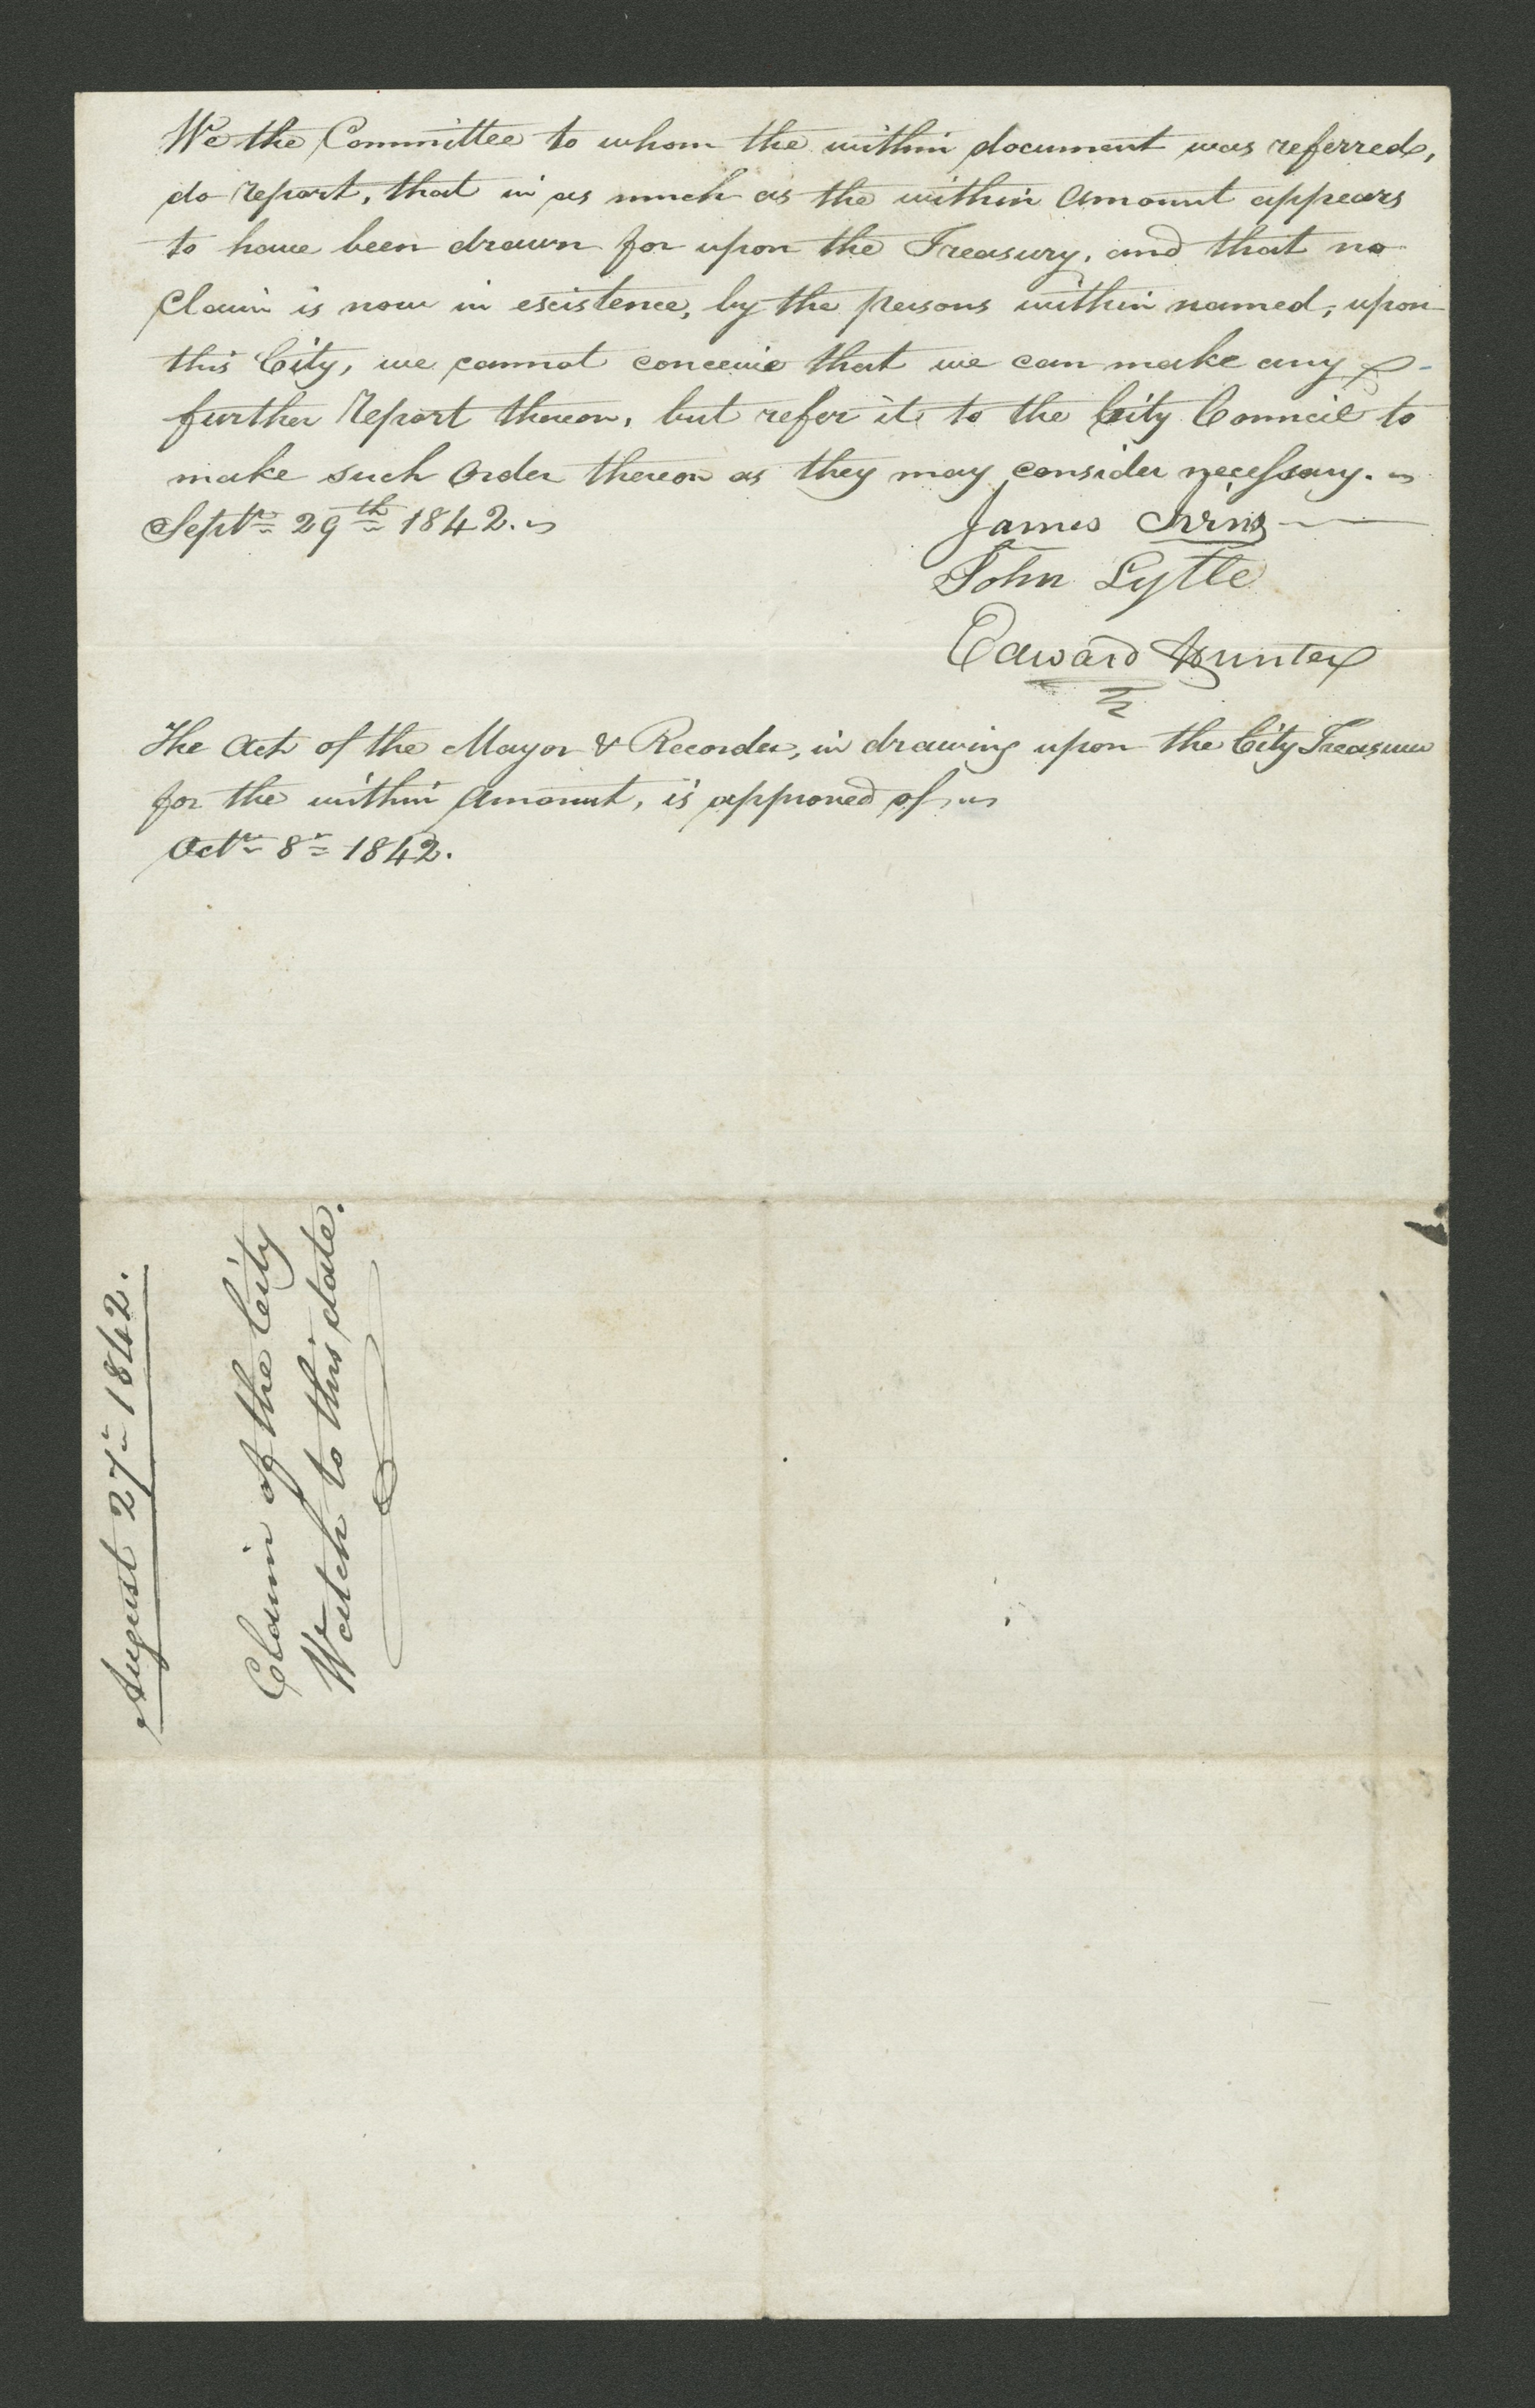 We the Committee to whom the within document was referred,
do report, that in as much as the within amount appears
to have been drawn for upon the Treasury, and that no
Claim is now in existence, by the persons within named, upon
this City, we cannot conceive that we can make any
further Report thereon, but refer it to the City Council to
make such Order thereon as they may consider necessary.
Septr. 29th 1842.
James Ivins
John Lytle
Edward Hunter
The Act of the Mayor & Recorder, in drawing upon the City Treasurer
for the within Amount, is approved of
Octr. 8th 1842.
August 27th 1842.
Claim of the City
Watch to this date.